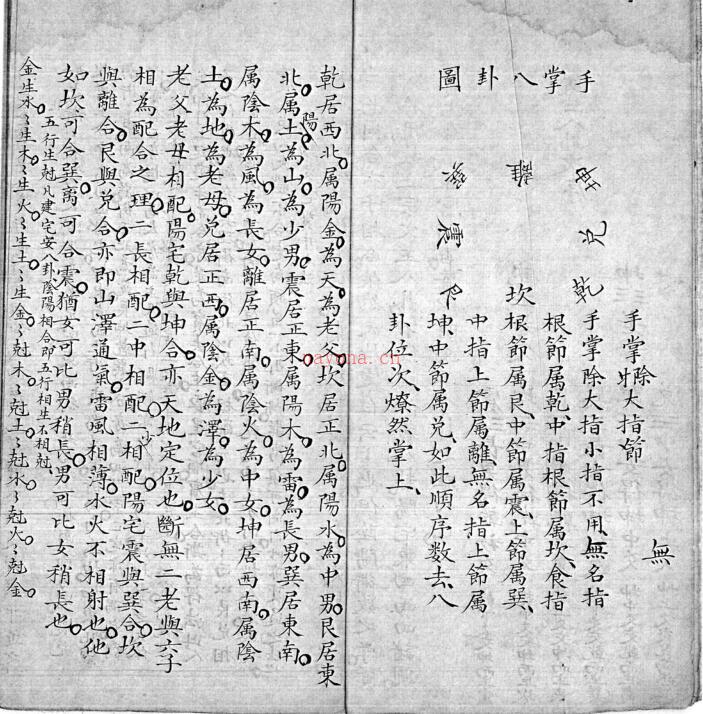 手掌八卦圖
坤 離 巽
兌 震
乾 坎 艮
手掌除大指節
無
手掌除大指小指不用、無名指
根節属乾、中指根節属坎、食指
根節属艮、中節属震、上節属巽、
中指上節属離、無名指上節属
坤、中節属兌、如此順序数去、八
卦位次、燎然掌上、
乾居西北。属陽金。為天。為老父。坎居正北。属陽水。為中男。艮居東
北。属陽土。為山。為少男。震居正東。属陽木。為雷。為長男。巽居東南。
属陰木。為風。為長女。離居正南。属陰火。為中女。坤居西南。属陰
土。為地。為老母。兌居正西。属陰金。為澤。為少女。
老父老母相配。陽宅乾與坤合。亦天地定位也。斷無二老與六子
相為配合之理。二長相配。二中相配。二少相配。陽宅震與巽合。坎
與離合。艮與兌合。亦即山澤通氣。雷風相薄。水火不相射也。他
如坎可合巽。离可合震。猶女可比男稍長。男可比女稍長也。
五行生尅凡建宅安八卦陰陽相合即五行相生不相尅
金生水。〻生木。〻生火。〻生土。〻生金。〻尅木。〻尅土。〻尅水。〻尅火。〻尅金。
nayona.cn